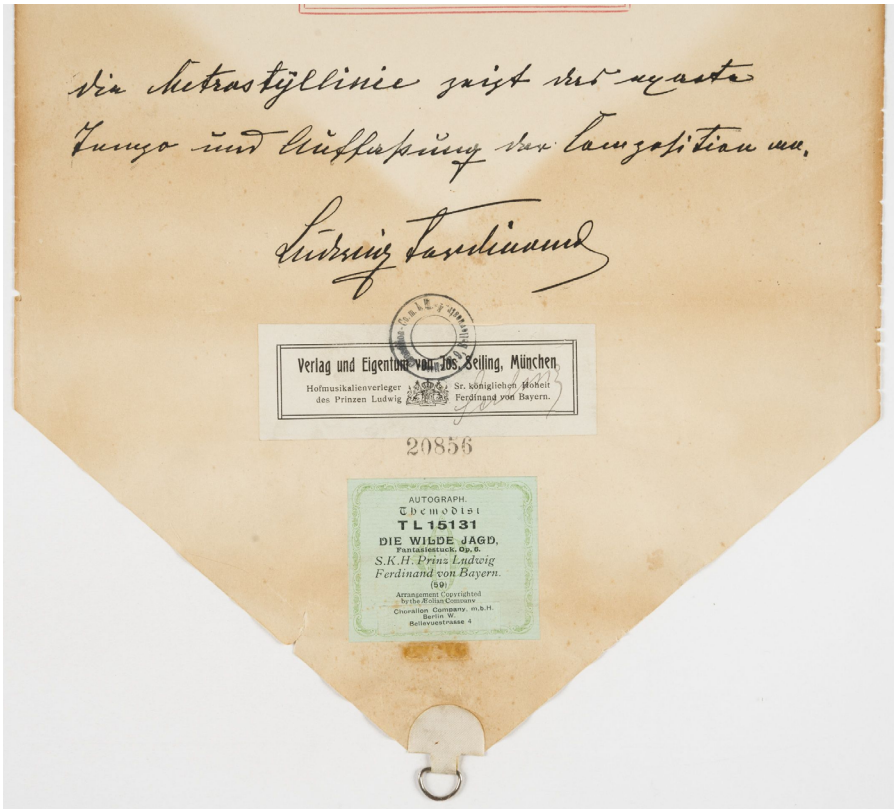 die Metrostyllinie zeigt das exacte
Tempo und Auffaßung der Composition an.
Ludwig Ferdinand
Verlag und Eigentum von Jos. Seiling, München
Hofmusikalienverleger Sr. königlichen Hoheit
des Prinzen Ludwig Ferdinand von Bayern.
20856
AUTOGRAPH.
Themodist
TL 15131
DIE WILDE JAGD,
Fantasiestuck, Op. 6.
S.K.H. Prinz Ludwig
Ferdinand von Bayern.
(59)
Arrangement Copyrighted
by the Æolian Company
Choralion Company, m.b.H.
Berlin W.
Bellevuestrasse 4